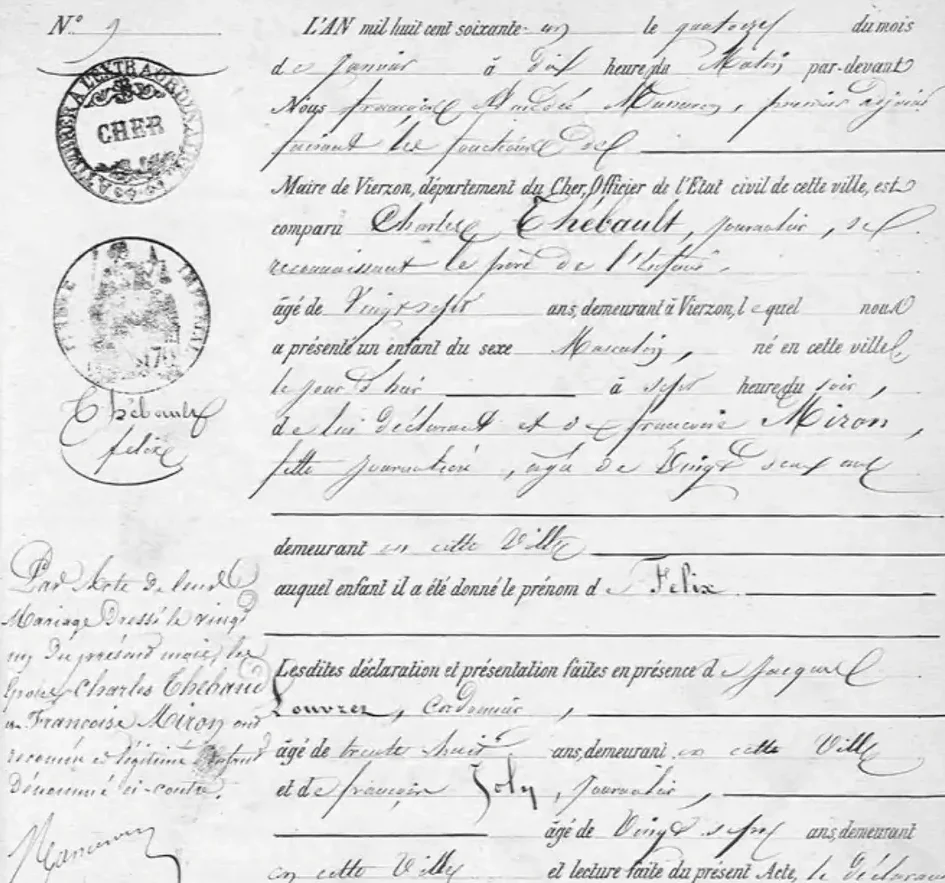 N° 9
L'AN mil huit cent soixante-un le quatorze du mois
de Janvier à dix heure du Matin par-devant
Nous françois premier adjoint
faisant les fonctions de
Maire de Vierzon, département du Cher, Officier de l'Etat civil de cette ville, est
comparu Charles Thébault, journalier, se
reconnaissant le père de l'Enfant,
âgé de Vingt sept ans, demeurant à Vierzon, lequel nous
a présenté un enfant du sexe Masculin, né en cette ville
le jour d'hier à sept heure du soir,
de lui déclarant et de françoise Miron,
fille journalière, âgée de Vingt deux ans
demeurant en cette Ville
auquel enfant il a été donné le prénom de Felix
Lesdites déclaration et présentation faites en présence de Jacques
Louvrer, Cordonnier,
âgé de trente huit ans, demeurant en cette Ville
et de françois Joly, journalier,
âgé de Vingt sept ans, demeurant
en cette Ville et lecture faite du présent Acte, le déclarant
TIMBRE A L'EXTRAORDINAIRE
CHER
TIMBRE IMPERIAL
Thébault
felix
Par Acte de leur
Mariage Dressé le vingt
un du présent mois, les
époux Charles Thébaud
et Françoise Miron ont
reconnu et légitimé l'enfant
Dénommé ci-contre.